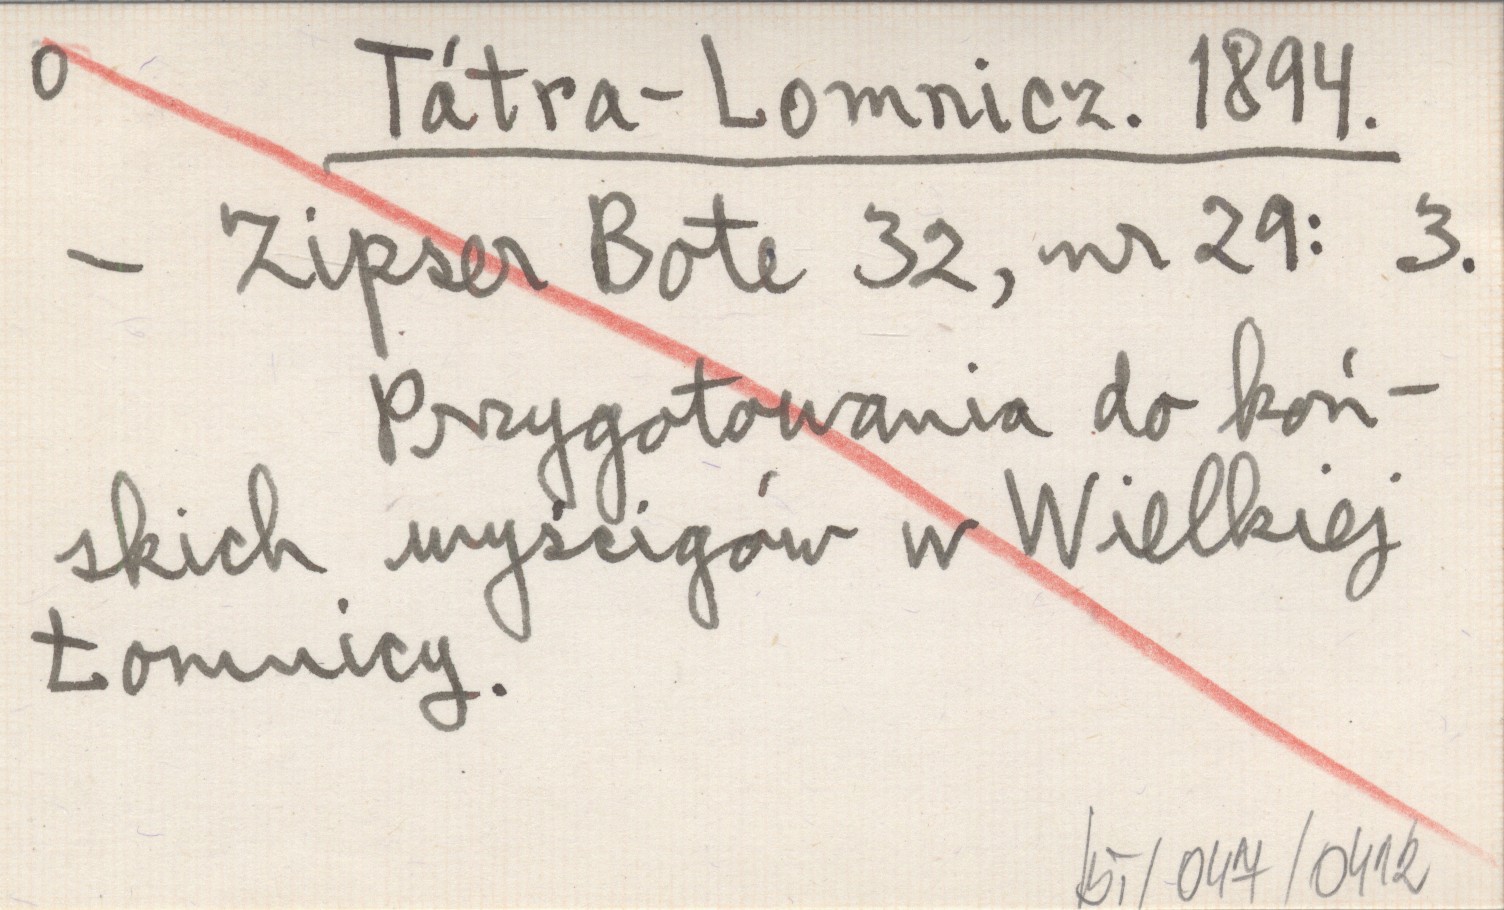 0
Tátra-Lomnicz. 1894.
- Zipser Bote 32, nr 29: 3.
Przygotowania do koń-
skich wyścigów w Wielkiej
Łomnicy.
/047/0412